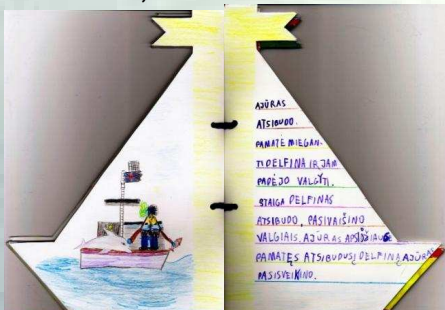 AJŪRAS
ATSIBUDO.
PAMATĖ MIEGAN-
TI DELFINĄ IR JAM
PADĖJO VALGYTI.
STAIGA DELFINAS
ATSIBUDO, PASIVAIŠINO
VALGIAIS. AJŪRAS APSIDŽIAUGĖ
PAMATĘS ATSIBUDUSĮ DELFINĄ. AJŪRAS
PASISVEIKINO.